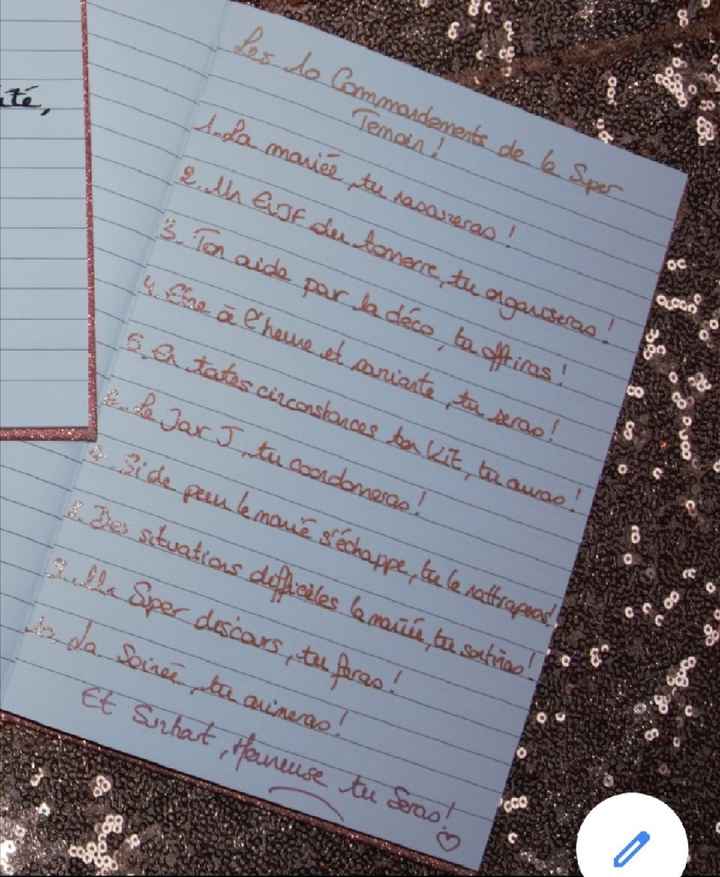 ité,
Les 10 Commandements de la Super
Temoin !
1. La mariée, tu rassureras !
2. Un EVJF du tonnerre, tu organiseras !
3. Ton aide par la déco, tu offriras !
4. Être à l'heure et souriante, tu seras !
5. En toutes circonstances ton Kit, tu auras !
6. Le Jour J, tu coordoneras !
7. Si de peur le marié s'échappe, tu le rattraperas !
8. Des situations difficiles la mariée, tu sortiras !
9. Un Super discours, tu feras !
10. La Soirée, tu animeras !
Et Surtout, Heureuse tu Seras !